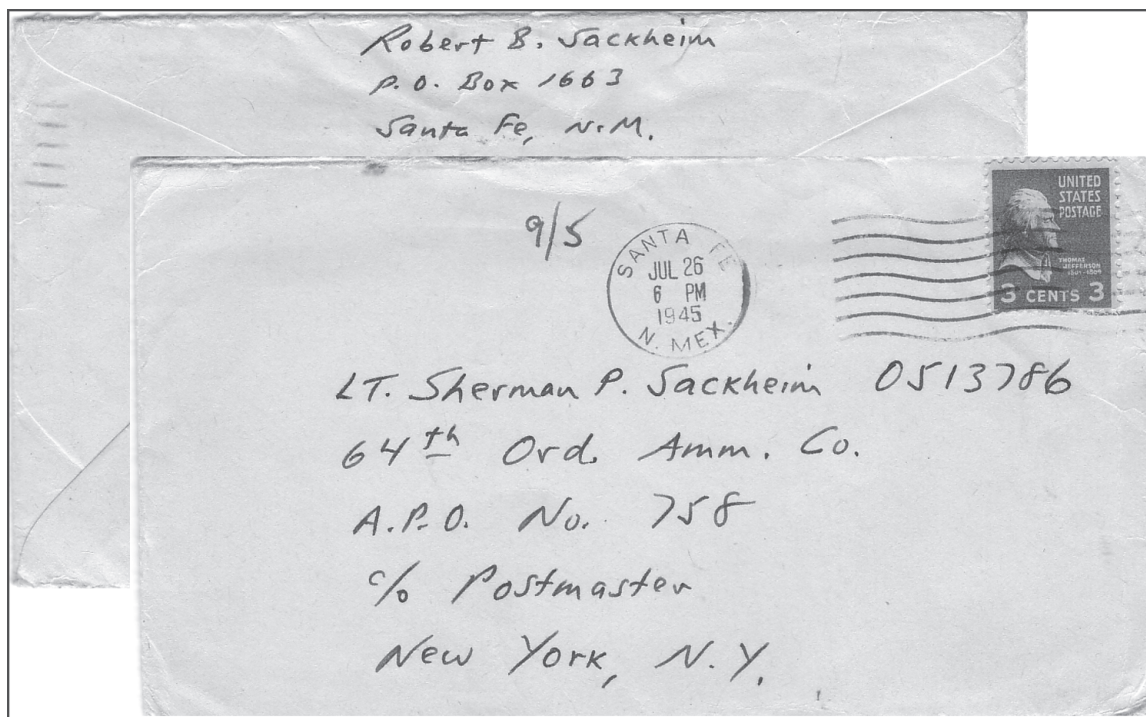 Robert B. Sackheim
P.O. Box 1663
Santa Fe, N.M.
9/5
SANTA FE
JUL 26
6 PM
1945
N. MEX.
UNITED
STATES
POSTAGE
THOMAS
JEFFERSON
1801-1809
3 CENTS 3
LT. Sherman P. Sackheim 0513786
64th Ord. Amm. Co.
A.P.O. No. 758
c/o Postmaster
New York, N.Y.